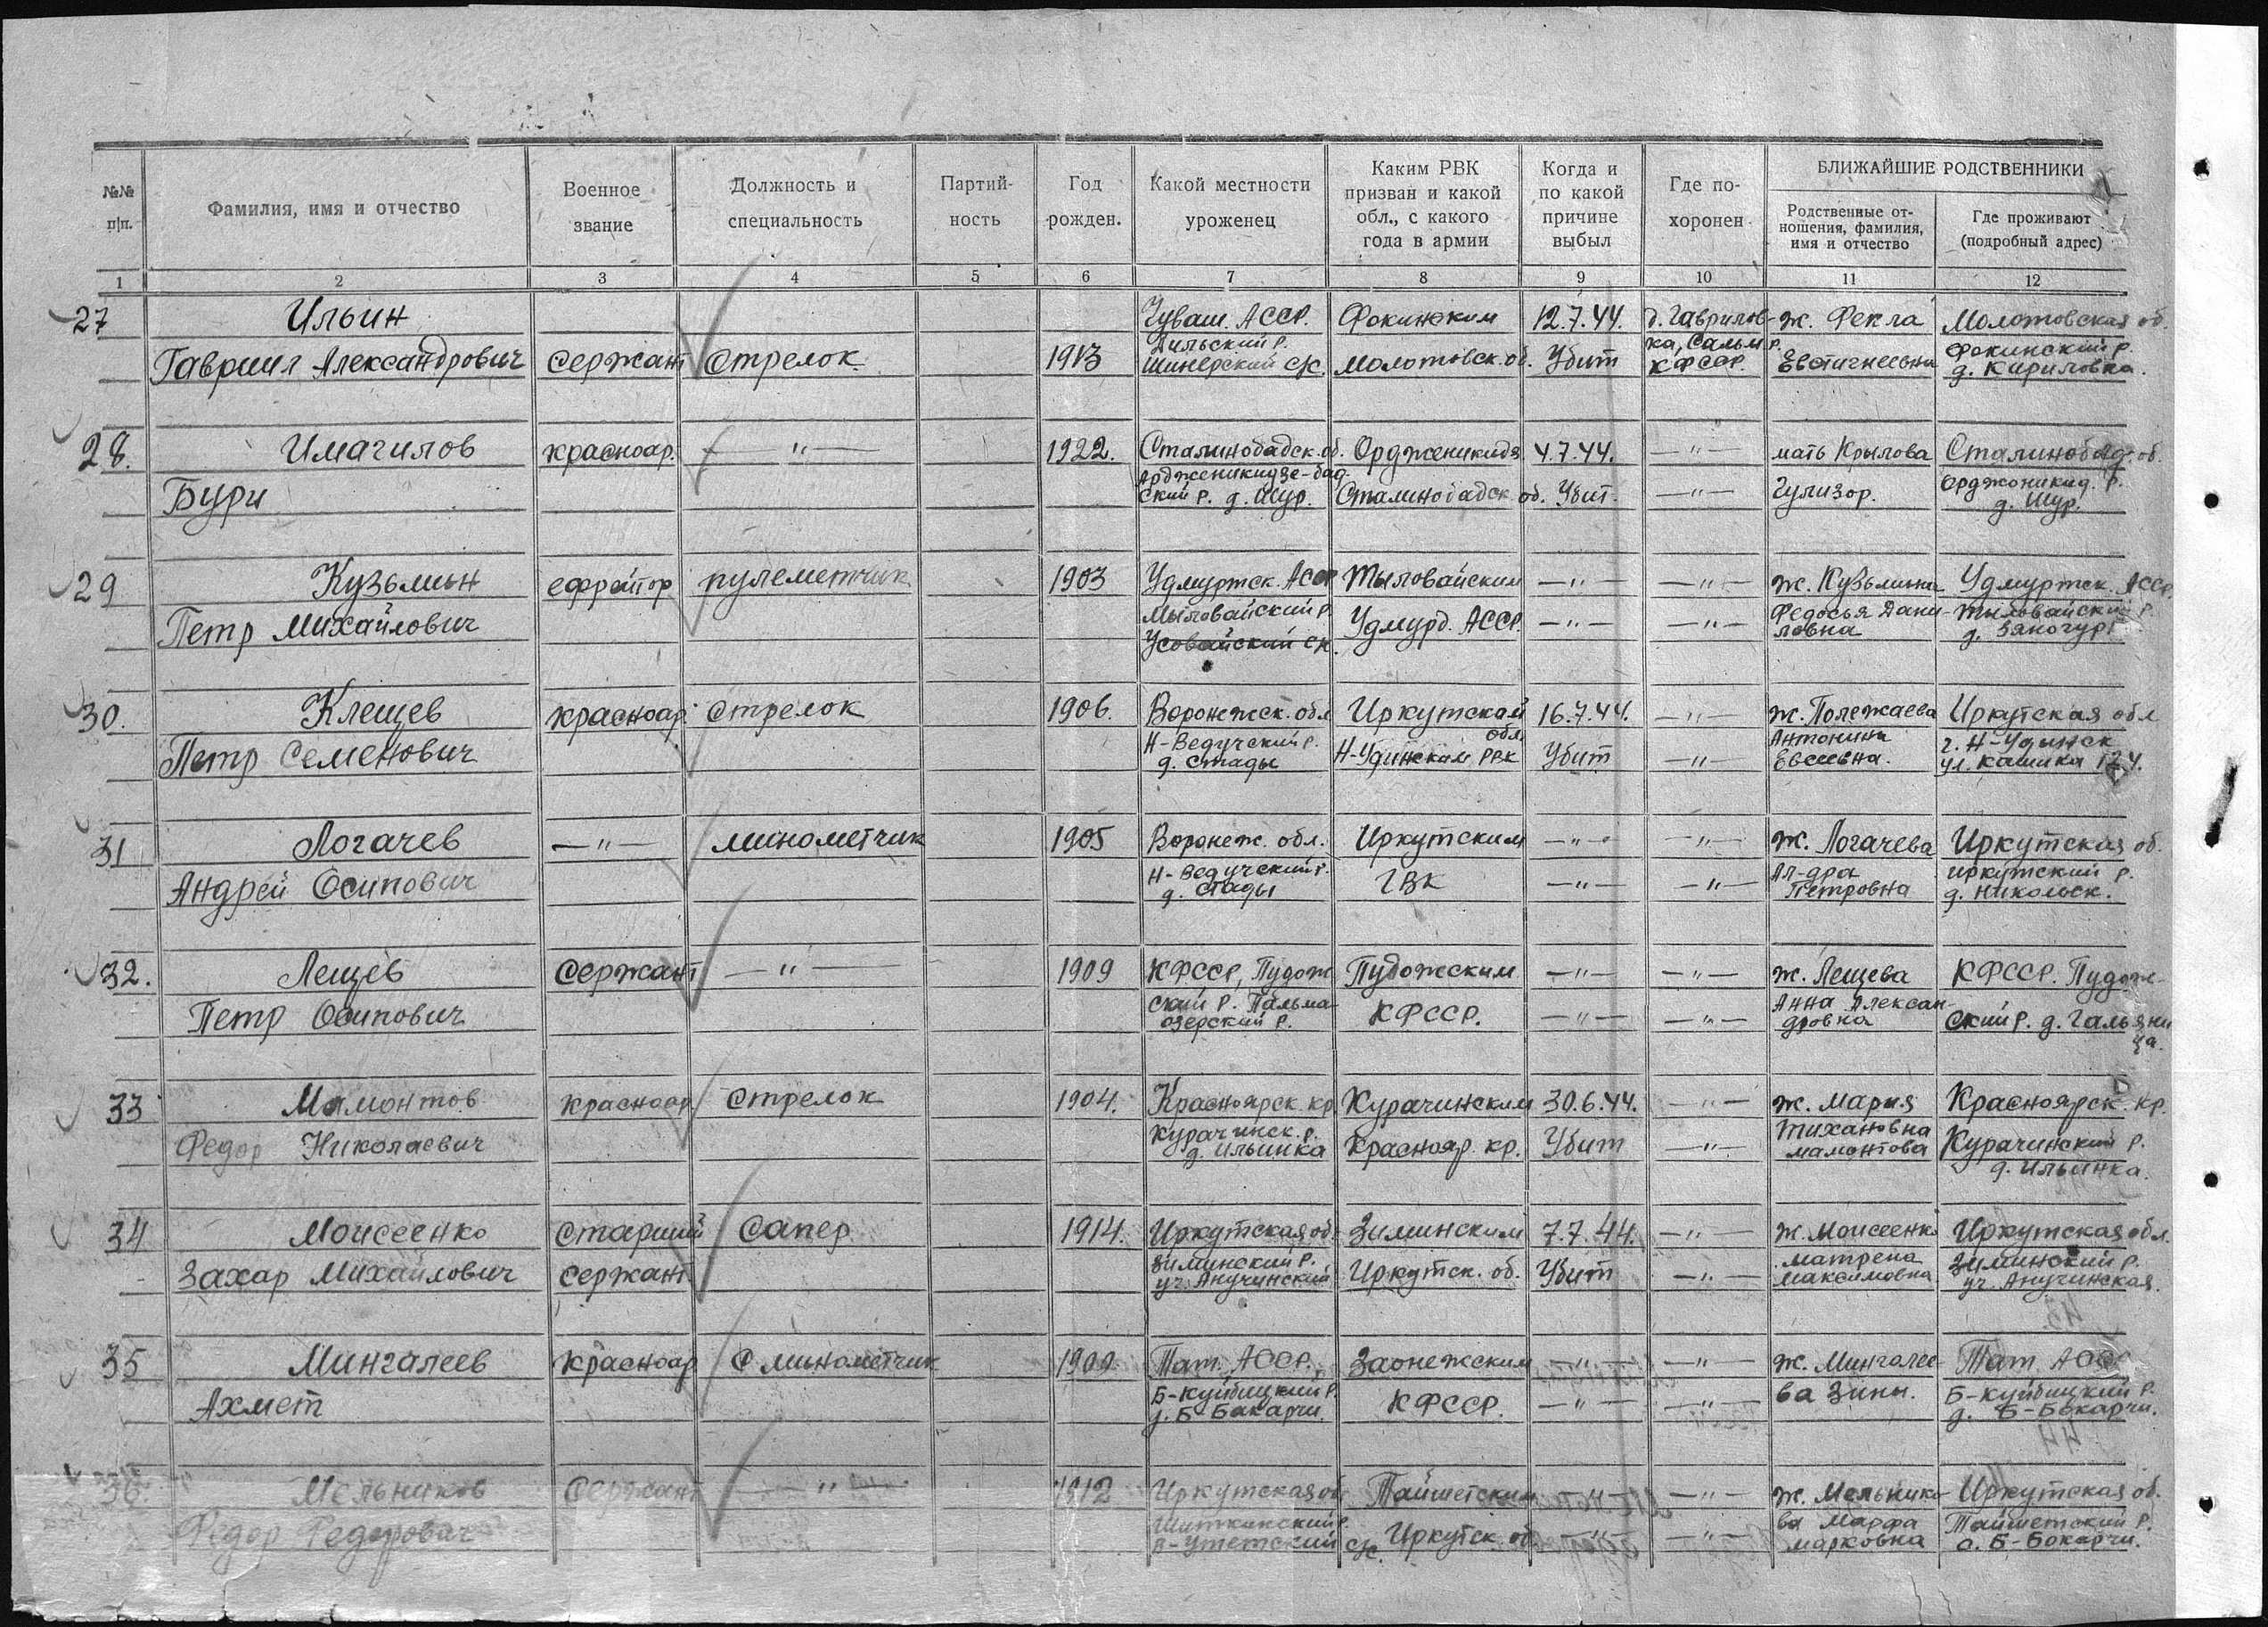 №№ п/п.
Фамилия, имя и отчество
Военное звание
Должность и специальность
Партий-ность
Год рожден.
Какой местности уроженец
Каким РВК призван и какой обл., с какого года в армии
Когда и по какой причине выбыл
Где по-хоронен
БЛИЖАЙШИЕ РОДСТВЕННИКИ
Родственные от-ношения, фамилия, имя и отчество
Где проживают (подробный адрес)
1 2 3 4 5 6 7 8 9 10 11 12
27 Ильин Чуваш. АССР. Фокинским 12.7.44. д. Гаврилов- ж. Фекла Молотовская об.
Гавриил Александрович Сержант Стрелок 1913 Шинерский с/с. Молотовск. об. Убит ка, Сальм. р. КФССР. Евстигнеевна Фокинский р. д. Кириловка.
28. Имагилов красноар. — " — 1922. Сталинобадск. об. Ордженикидз 4.7.44. — " — мать Крылова Сталинобад. об.
Бури Арджениикидзе-бад-ский р. д. Шур. Сталинобадск об. Убит. — " — Гулизор. Орджоникид. р. д. Шур.
29 Кузьмин ефрейтор пулеметчик 1903 Удмуртск. АССР Тыловайским — " — — " — ж. Кузьмина Удмуртск. АССР.
Петр Михайлович Мыловайский р. Усовайский с/с. Удмурд. АССР. — " — — " — Федосья Дани-ловна Тыловайский р. д.
30. Клещев красноар. Стрелок 1906. Воронежск. обл Иркутской обл. 16.7.44. — " — ж. Полежаева Иркутская обл
Петр Семенович Н-Ведучский р. д. Стады Н-Удинским РВК Убит — " — Антонина Евсеевна. г. Н-Удинск ул. Кашика
31 Логачев — " — минометчик 1905 Воронеж. обл. Иркутским — " — — " — ж. Логачева Иркутская об.
Андрей Осипович Н-Ведучский р. д. Стады ГВК — " — — " — Ал-дра Петровна Иркутский р. д. Никольск.
32. Лещев Сержант — " — 1909 КФССР, Пудож Пудожским — " — — " — ж. Лещева КФССР. Пудож-
Петр Осипович ский р. Пальма-озерский р. КФССР. — " — — " — Анна Алексан-дровна ский р. д. Гальяни ца.
33 Мамонтов красноар Стрелок 1904. Красноярск. кр Курачинским 30.6.44. — " — ж. Мария Красноярск. кр.
Федор Николаевич Курачинск. р. д. Ильинка Краснояр. кр. Убит — " — Тихановна Мамонтова Курачинский р. д. Ильинка.
34 Моисеенко Старший Сапер 1914. Иркутская об. Зиминским 7.7.44. — " — ж. Моисеенко Иркутская обл.
Захар Михайлович Сержант Зиминский р. уч. Анучинский Иркутск. об. Убит — " — Матрена Максимовна Зиминский р. уч. Анучинская.
35 Мингалеев красноар минометчик 1909. Тат. АССР. Заонежским — " — — " — ж. Мингалее- Тат. АССР
Ахмет Б-Куйбицкий р. д. Б-Бакарчи. КФССР. — " — — " — ва Зины. Б-Куйбицкий р. д. Б-Бокарчи.
36. Мельников Сержант — " — 1912 Иркутская об Тайшетским — " — — " — ж. Мельнико- Иркутская об.
Федор Федорович Шиткинский р. с/с. Иркутск. об. — " — — " — ва Марфа Марковна Тайшетский р. с. Б-Бокарчи.